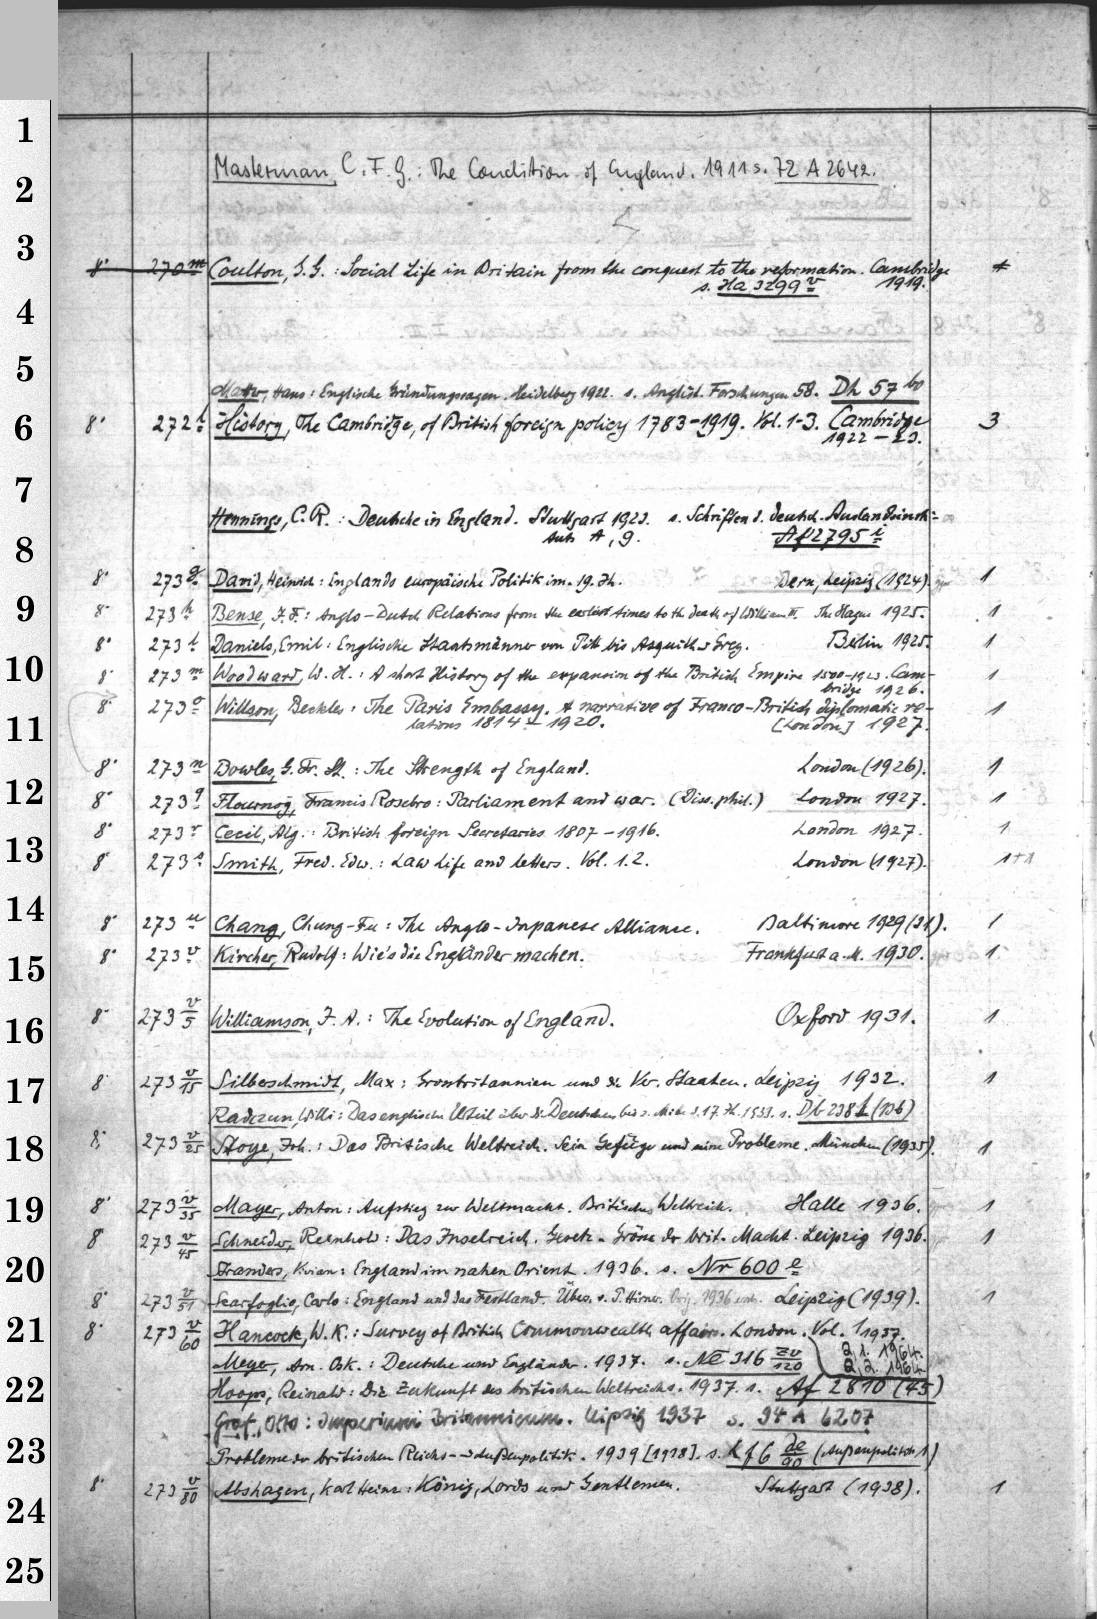 1
Masterman, C. F. G.: The Condition of England. 1911 s. 72 A 2642.
2
3
8° 270 m Coulton, G. G.: Social Life in Britain from the conquest to the reformation. Cambridge
s. Ha 3299 v 1919.
4
5
Hans: Englische Gründungssagen. Heidelberg 1922. s. Anglist. Forschungen 58. Dh 57 bo
6
8° 272 h History, The Cambridge, of British foreign policy 1783-1919. Vol. 1-3. Cambridge 3
1922-23.
7
Hennings, C. R.: Deutsche in England. Stuttgart 1923. s. Schriften d. deutsch. Auslandsinst:
A, 9. Af 2795 i
8
8° 273 g David, Heinrich: Englands europäische Politik im 19. Jh. Bern, Leipzig (1924). 1
9
8° 273 h Bense, J. F.: Anglo-Dutch Relations from the earliest times to the death of William III. The Hague 1925. 1
8° 273 i Daniels, Emil: Englische Staatsmänner von Pitt bis Asquith u Grey. Berlin 1925. 1
10
8° 273 m Woodward, W. H.: A short History of the expansion of the British Empire 1500-1923. Cam- 1
bridge 1926.
8° 273 o Willson, Beckles: The Paris Embassy. A narrative of Franco-British diplomatic re- 1
11
lations 1814-1920. [London] 1927.
8° 273 n Bowles, G. Fr. St.: The Strength of England. London (1926). 1
12
8° 273 q Flournoy, Francis Rosebro: Parliament and war. (Diss. phil.) London 1927. 1
8° 273 r Cecil, Alg.: British foreign Secretaries 1807-1916. London 1927. 1
13
8° 273 s Smith, Fred. Edw.: Law Life and letters. Vol. 1.2. London (1927). 1+1
14
8° 273 u Chang, Chung-Fu: The Anglo-Japanese Alliance. Baltimore 1929 (31). 1
8° 273 v Kircher, Rudolf: Wie's die Engländer machen. Frankfurt a. M. 1930. 1
15
8° 273 v/5 Williamson, J. A.: The Evolution of England. Oxford 1931. 1
16
8° 273 v/15 Silberschmidt, Max: Grossbritannien und die Ver. Staaten. Leipzig 1932. 1
17
Radczun, Willi: Das englische Urteil über die Deutschen bis z. Mitte d. 17. Jh. 1933. s. Db 238 h (136)
18
8° 273 v/25 Stoye, Joh.: Das Britische Weltreich. Sein Gefüge und seine Probleme. München (1935). 1
19
8° 273 v/35 Mayer, Anton: Aufstieg zur Weltmacht. Britisches Weltreich. Halle 1936. 1
8° 273 v/45 Schneider, Reinhold: Das Inselreich. Gesetz u. Grösse der brit. Macht. Leipzig 1936. 1
20
Franders, Kvian: England im nahen Orient. 1936. s. Nr 600 e
8° 273 v/51 Scarfoglio, Carlo: England und das Festland. Übers. v. P. Hirner. Orig. 1936 Leipzig (1939). 1
21
8° 273 v/60 Hancock, W. K.: Survey of British Commonwealth affairs. London. Vol. 1 1937.
2,1. 1964.
Meyer, Arn. Osk.: Deutsche und Engländer. 1937. s. NE 316 zv/120 2,2. 1964
22
Hoops, Reinald: Die Zukunft des britischen Weltreichs. 1937. s. Af 2810 (45)
Graf, Otto: Imperium Britannicum. Leipzig 1937 s. 94 A 6207
23
Probleme der britischen Reichs- u Außenpolitik. 1939 [1938]. s. kf 6 de/90 (Außenpolitik 1)
8° 273 v/80 Abshagen, Karl Heinz: König, Lords und Gentlemen. Stuttgart (1938). 1
24
25